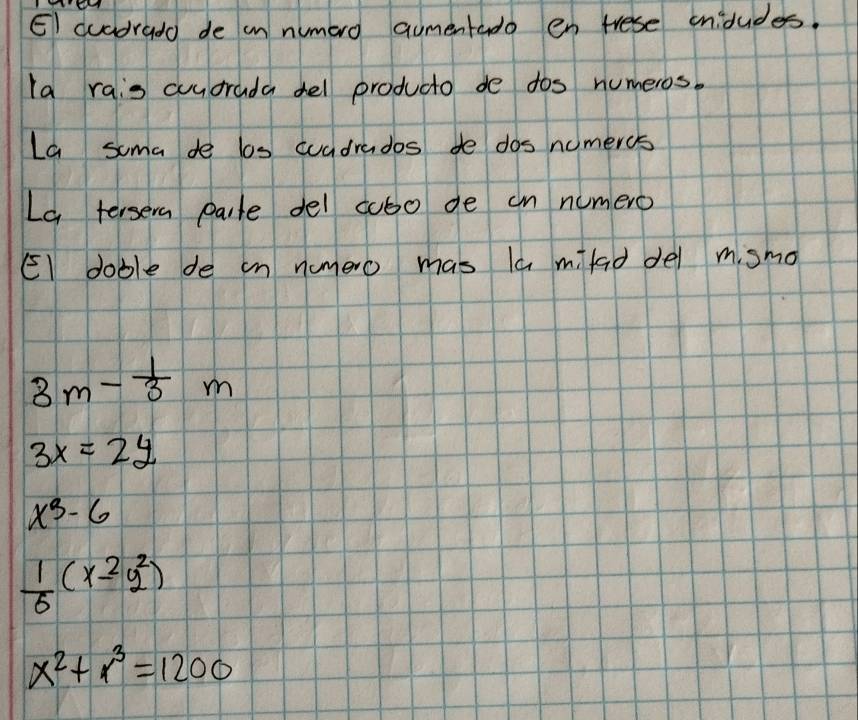 Tarea
El cuadrado de un numero aumentado en trese unidades.
la rais cuadrada del producto de dos numeros.
La suma de los cuadrados de dos numeros
La tersera parte del cubo de un numero
El doble de un numero mas la mitad del mismo
3m - 1/3 m
3x = 2y
x³ - 6
1/5 (x - 2y²)
x² + x³ = 1200